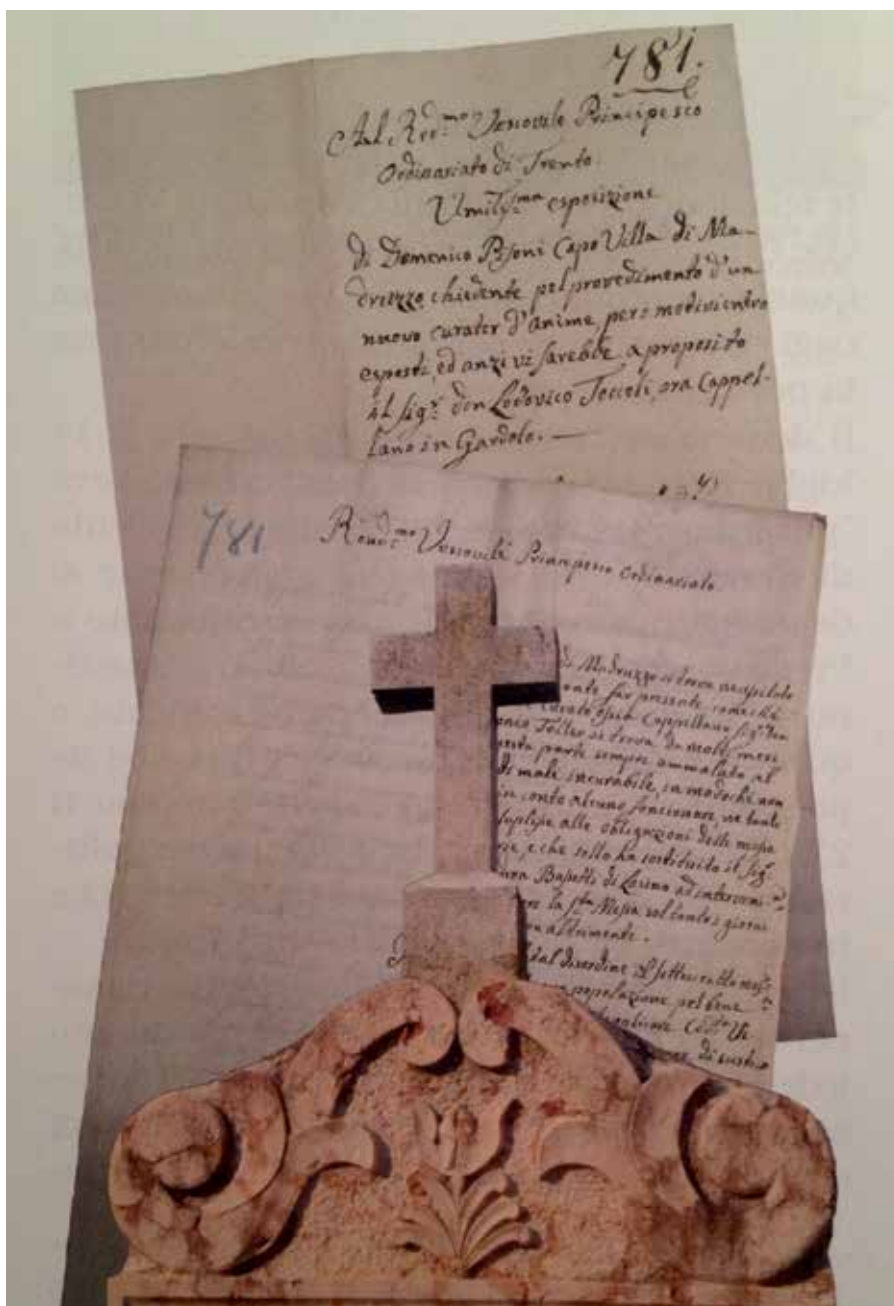 781.
Al Rev.mo Vescovile Principesco
Ordinariato di Trento.
Umiliss.ma esposizione
di Domenico Pisoni Capo Villa di Ma-
druzzo, chiedente pel provedimento d'un
nuovo curator d'anime, per i motivi entro
esposti, ed anzi vi sarebbe a proposito
il Sig.r don Lodovico Toccoli, ora Cappel-
lano in Gardolo. —
781
Rev.mo Vescovile Principesco Ordinariato
di Madruzzo si trova
far presente, come il
Curato ossia Cappellano Sig.r Don
si trova da molti mesi
parte sempre ammalato al
di male incurabile, in modoché non
in conto alcuno funzionare, ne tanto
alle obligazioni delle messe
e che sollo ha sostituito il Sig.r
di Lasino ad
la S.ta Messa soltanto giorni
altrimente.
dal disordine
popolazione pel bene
di